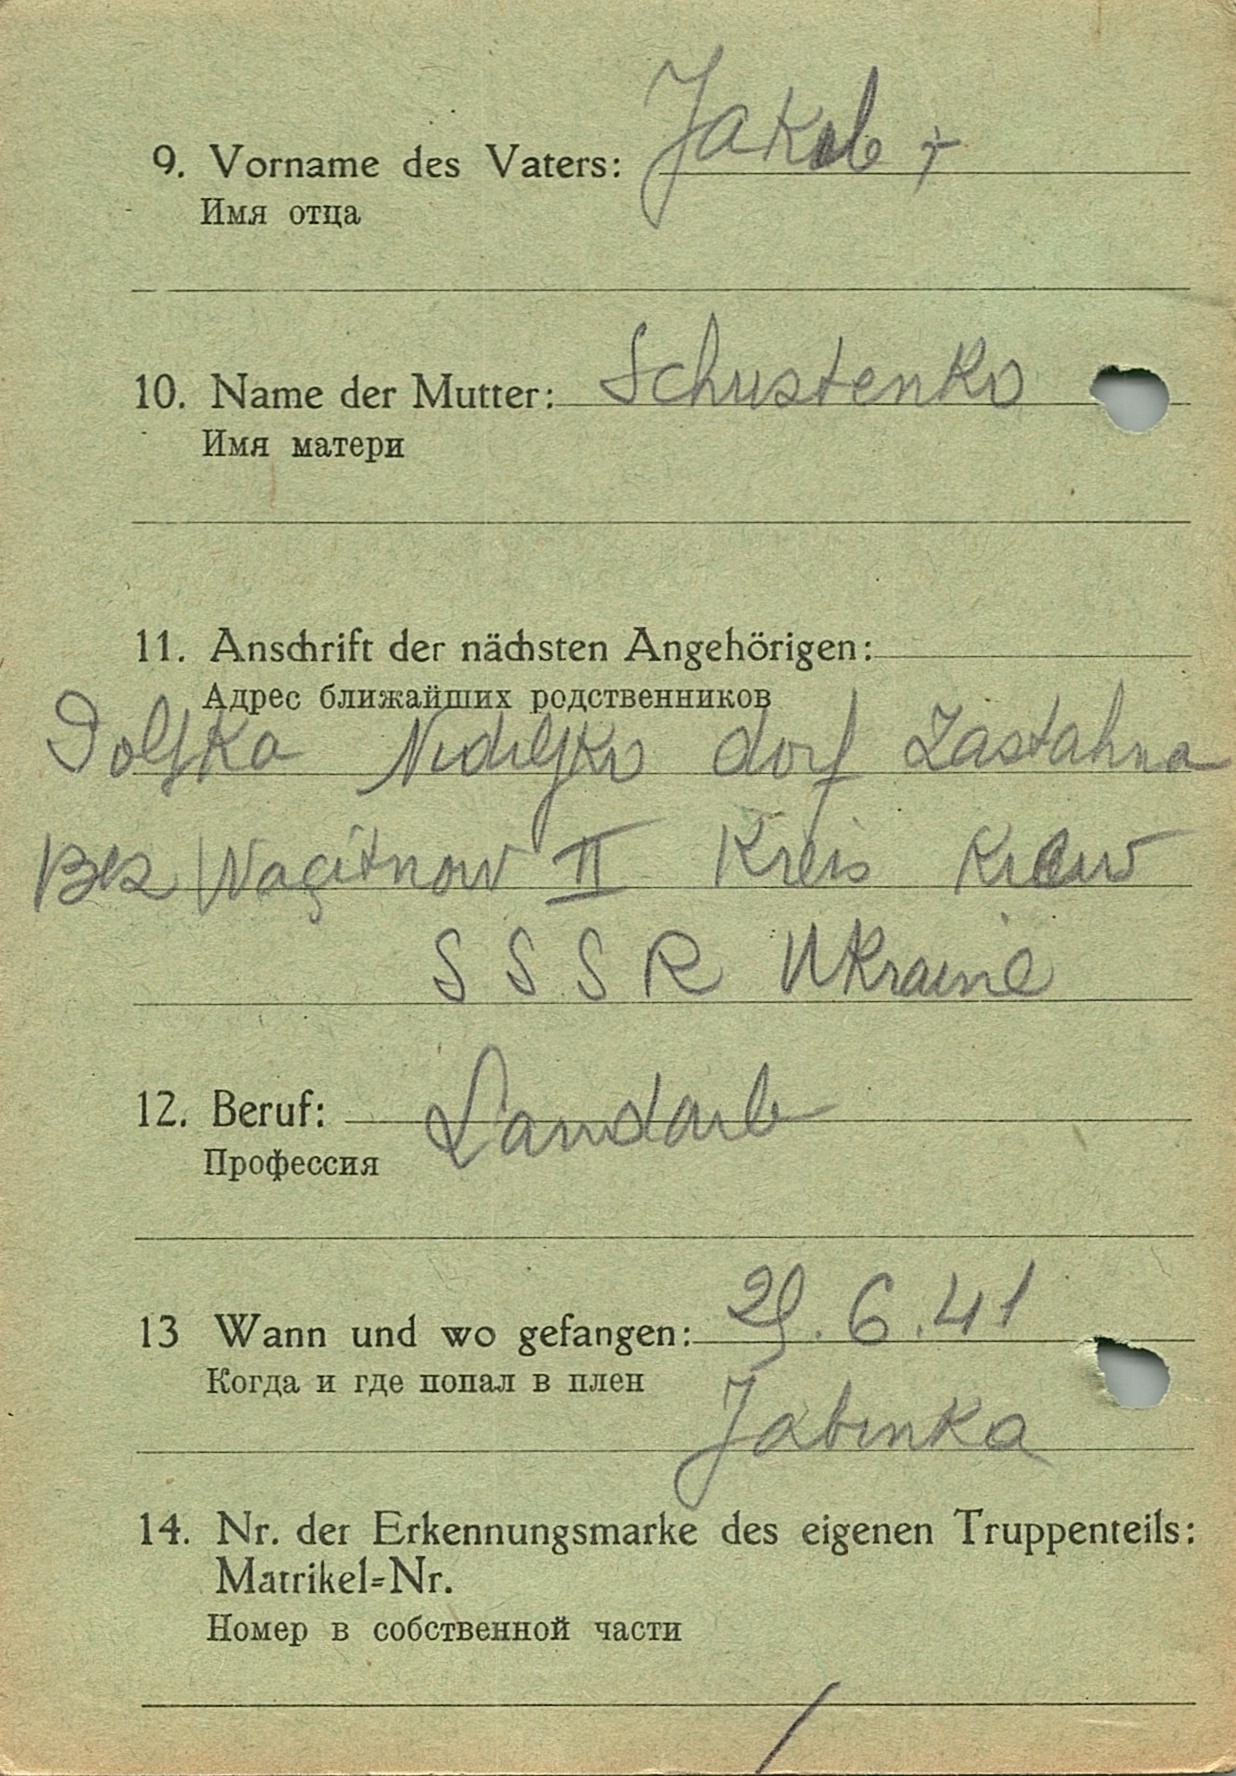 9. Vorname des Vaters: Jakob +
Имя отца
10. Name der Mutter: Schustenko
Имя матери
11. Anschrift der nächsten Angehörigen:
Адрес ближайших родственников
Nediljko dorf Zastahna
Bez Wagitnow II Kreis Kiew
SSSR Ukraine
12. Beruf: Landarb
Профессия
13 Wann und wo gefangen: 29.6.41
Когда и где попал в плен
Jabinka
14. Nr. der Erkennungsmarke des eigenen Truppenteils:
Matrikel=Nr.
Номер в собственной части
/